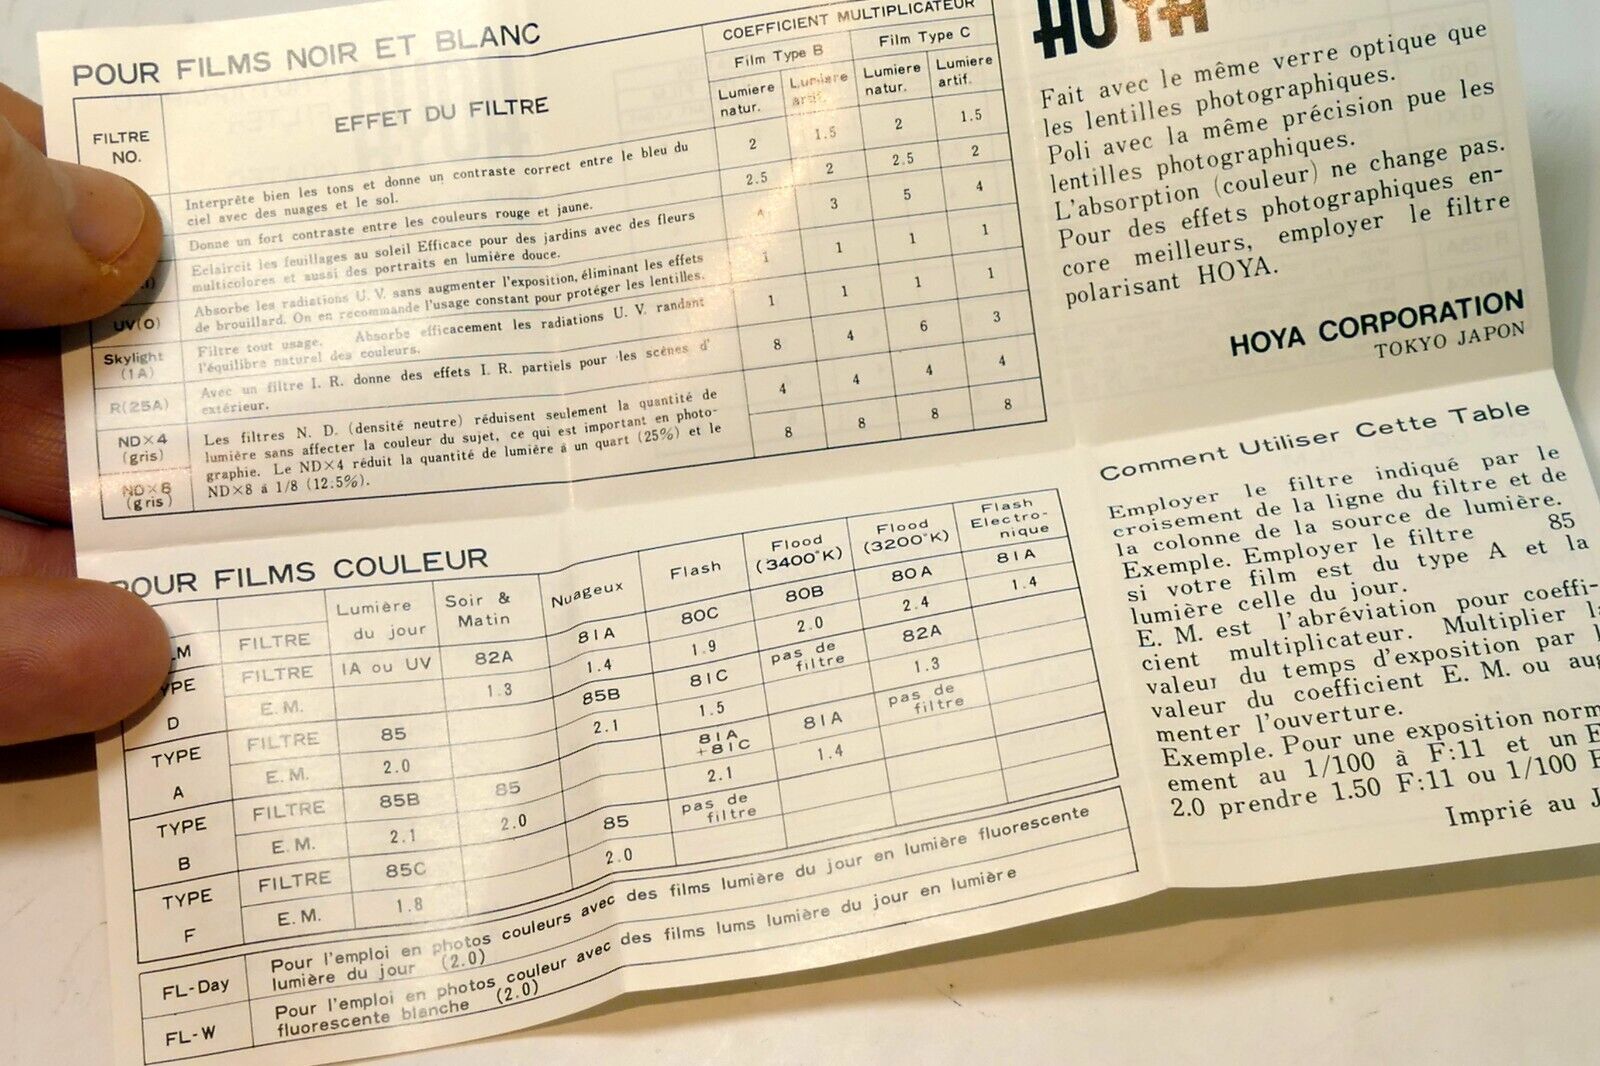 POUR FILMS NOIR ET BLANC
FILTRE NO.
EFFET DU FILTRE
COEFFICIENT MULTIPLICATEUR
Film Type B
Film Type C
Lumiere natur.
Lumiere artif.
Lumiere natur.
Lumiere artif.
Interprète bien les tons et donne un contraste correct entre le bleu du
ciel avec des nuages et le sol.
2 1.5 2 1.5
Donne un fort contraste entre les couleurs rouge et jaune.
2.5 2 2.5 2
Eclaircit les feuillages au soleil Efficace pour des jardins avec des fleurs
multicolores et aussi des portraits en lumière douce.
3 5 4
UV(O)
Absorbe les radiations U. V. sans augmenter l'exposition, éliminant les effets
de brouillard. On en recommande l'usage constant pour protéger les lentilles.
1 1 1 1
Skylight
(1A)
Filtre tout usage. Absorbe efficacement les radiations U. V. randant
l'équilibre naturel des couleurs.
1 1 1 1
R(25A)
Avec un filtre I. R. donne des effets I. R. partiels pour les scènes d'
extérieur.
8 4 6 3
ND×4
(gris)
4 4 4 4
ND×8
(gris)
8 8 8 8
Les filtres N. D. (densité neutre) réduisent seulement la quantité de
lumière sans affecter la couleur du sujet, ce qui est important en photo-
graphie. Le ND×4 réduit la quantité de lumière à un quart (25%) et le
ND×8 á 1/8 (12.5%).
POUR FILMS COULEUR
FILTRE
Lumière
du jour
Soir &
Matin
Nuageux
Flash
Flood
(3400°K)
Flood
(3200°K)
Flash
Electro-
nique
TYPE
D
FILTRE 1A ou UV 82A 81A 80C 80B 80A 81A
E. M. 1.3 1.4 1.9 2.0 2.4 1.4
TYPE
A
FILTRE 85 85B 81C pas de filtre 82A
E. M. 2.0 2.1 1.5 1.3
TYPE
B
FILTRE 85B 85 81A +81C 81A pas de filtre
E. M. 2.1 2.0 2.1 1.4
TYPE
F
FILTRE 85C 85 pas de filtre
E. M. 1.8 2.0
FL-Day
Pour l'emploi en photos couleurs avec des films lumière du jour en lumière fluorescente
lumière du jour (2.0)
FL-W
Pour l'emploi en photos couleur avec des films lums lumière du jour en lumière
fluorescente blanche (2.0)
HOYA
Fait avec le même verre optique que
les lentilles photographiques.
Poli avec la même précision pue les
lentilles photographiques.
L'absorption (couleur) ne change pas.
Pour des effets photographiques en-
core meilleurs, employer le filtre
polarisant HOYA.
HOYA CORPORATION
TOKYO JAPON
Comment Utiliser Cette Table
Employer le filtre indiqué par le
croisement de la ligne du filtre et de
la colonne de la source de lumière.
Exemple. Employer le filtre 85
si votre film est du type A et la
lumière celle du jour.
E. M. est l'abréviation pour coeffi-
cient multiplicateur. Multiplier
valeur du temps d'exposition par
valeur du coefficient E. M. ou
menter l'ouverture.
Exemple. Pour une exposition
ement au 1/100 à F:11 et un
2.0 prendre 1.50 F:11 ou 1/100
Imprié au